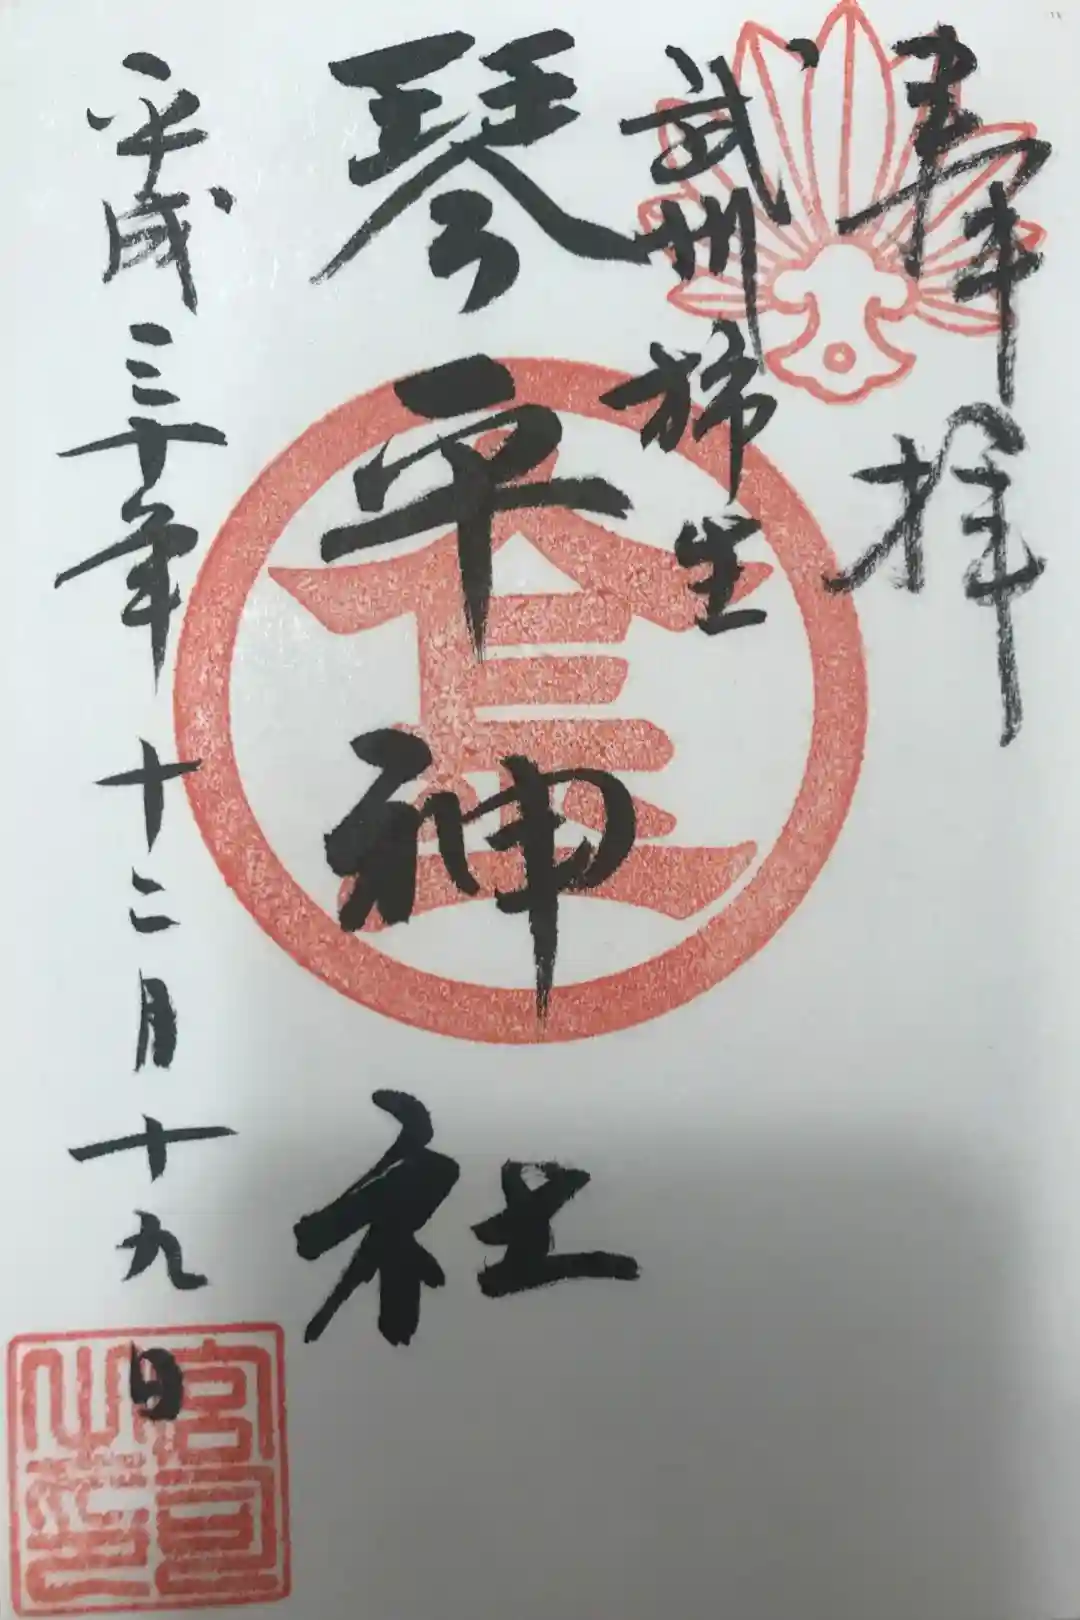 奉拝
武州柿生
琴平神社
平成三十年十二月十九日
金